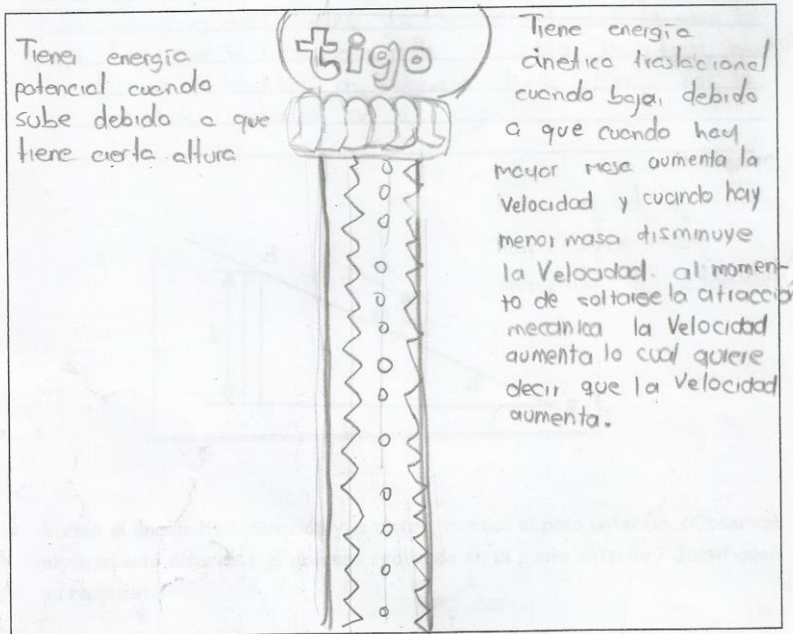 Tiener energía
potencial cuando
sube debido a que
tiene cierta altura
tigo
Tiene energía
cinetica traslacional
cuando baja, debido
a que cuando hay
mayor masa aumenta la
Velocidad y cuando hay
menor masa dismínuye
la Velocidad. al momen-
to de soltarse la atracción
mecanica la Velocidad
aumenta lo cual quiere
decir que la Velocidad
aumenta.